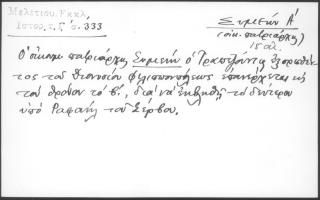 Μελετίου. Εκκλ.
Ιστορ. τ. Γ΄ σ. 333
Συμεών Α΄
(οικ. πατριάρχης)
15 αι.
Ο οικουμ. πατριάρχης Συμεών ο Τραπεζούντιος εξορισθέν
τος του Διονυσίου Φιλιππουπόλεως επανέρχεται εις
τον θρόνον το β΄, δια να εκβληθή το δεύτερον
υπό Ραφαήλ του Σέρβου.